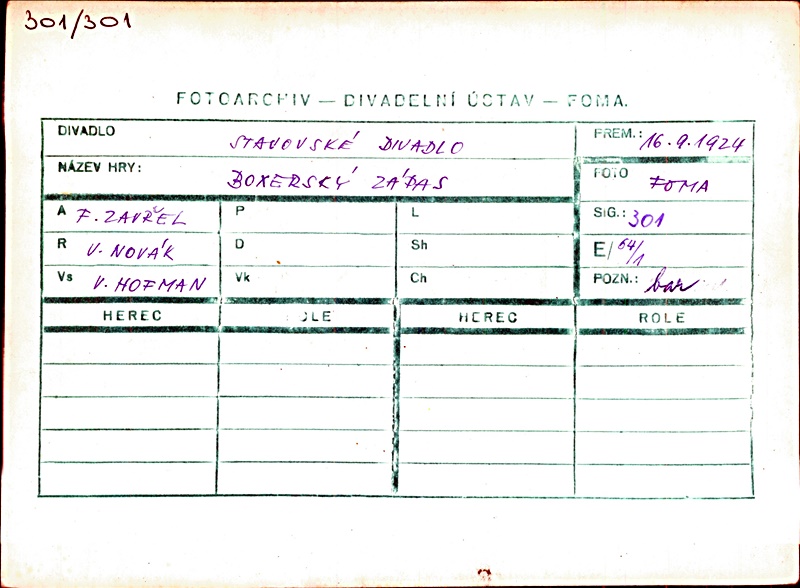 301/301
FOTOARCHIV — DIVADELNÍ ÚSTAV — FOMA.
DIVADLO STAVOVSKÉ DIVADLO PREM.: 16.9.1924
NÁZEV HRY: BOXERSKÝ ZÁPAS FOTO FOMA
A F. ZAVŘEL P L SIG.: 301
R V. NOVÁK D Sh E/ 64/1
Vs V. HOFMAN Vk Ch POZN.: bar
HEREC ROLE HEREC ROLE